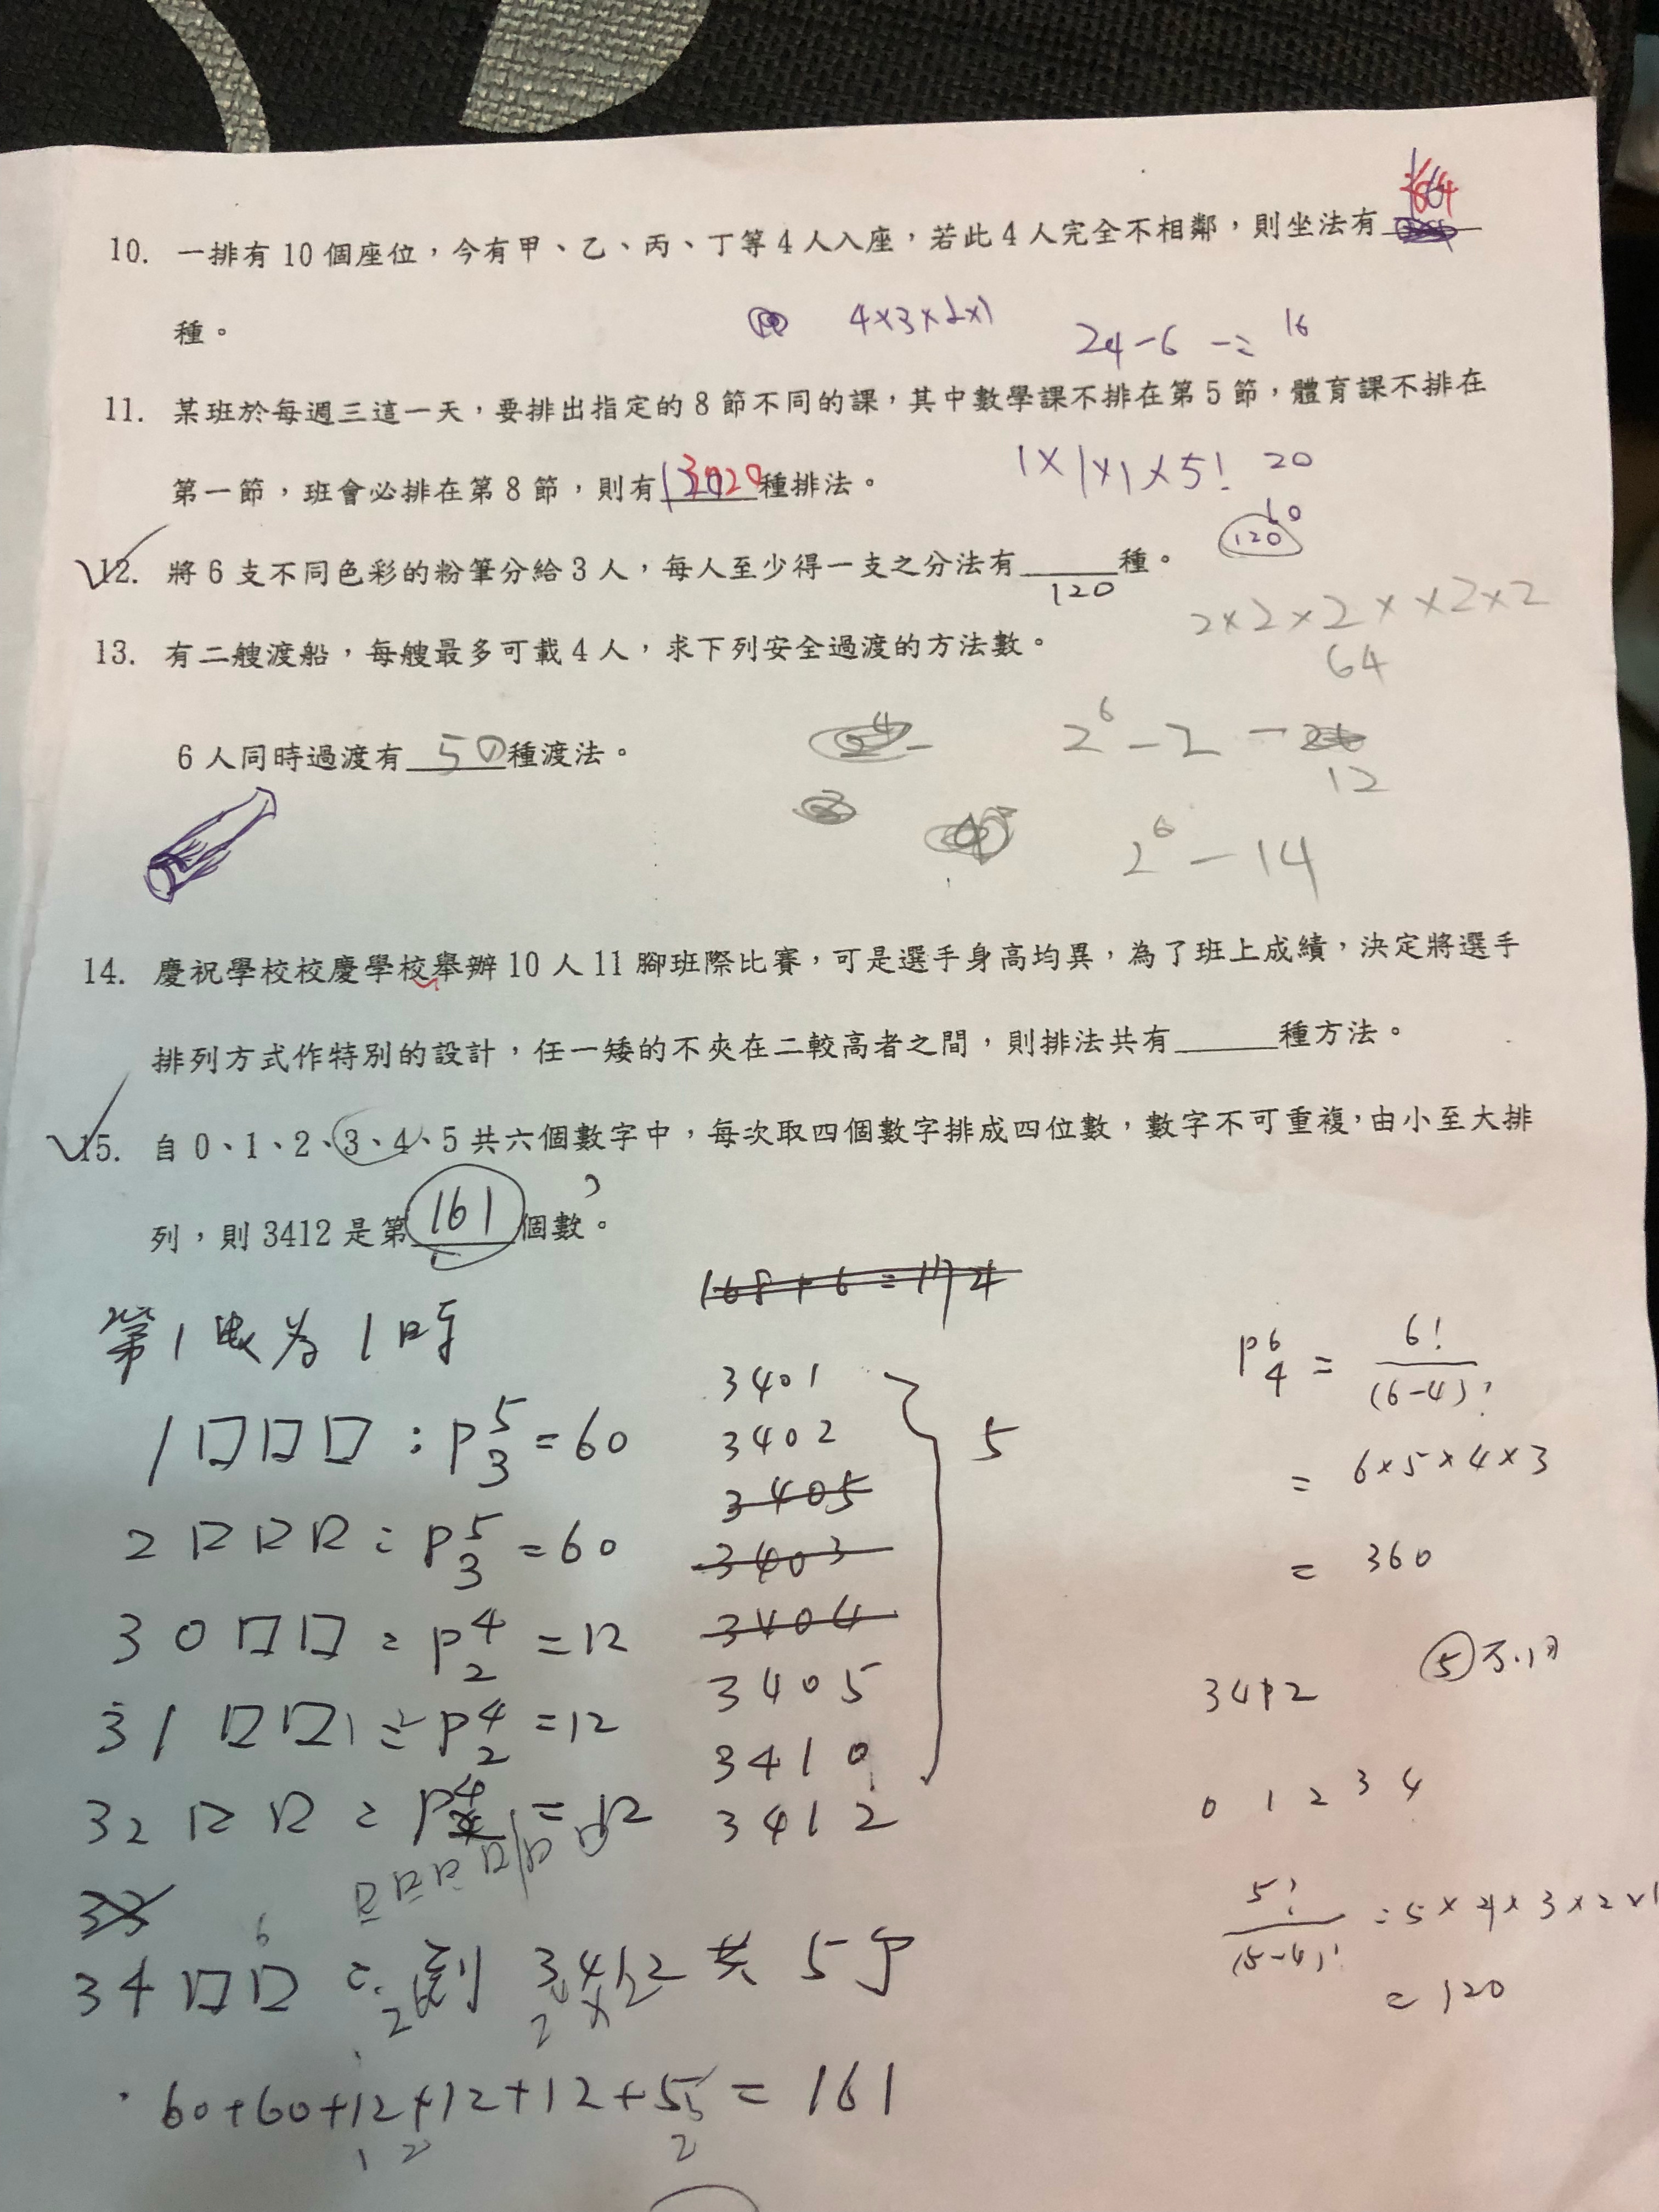 10. 一排有10個座位，今有甲、乙、丙、丁等4人入座，若此4人完全不相鄰，則坐法有
種。
4×3×2×1
24-6 -= 16
11. 某班於每週三這一天，要排出指定的8節不同的課，其中數學課不排在第5節，體育課不排在
第一節，班會必排在第8節，則有 種排法。
1×1×1×5! 20
60
120
12. 將6支不同色彩的粉筆分給3人，每人至少得一支之分法有 120 種。
2×2×2××2×2
64
13. 有二艘渡船，每艘最多可載4人，求下列安全過渡的方法數。
6人同時過渡有 50 種渡法。
2^6-2-
12
2^6-14
14. 慶祝學校校慶學校舉辦10人11腳班際比賽，可是選手身高均異，為了班上成績，決定將選手
排列方式作特別的設計，任一矮的不夾在二較高者之間，則排法共有______種方法。
15. 自0、1、2、3、4、5共六個數字中，每次取四個數字排成四位數，數字不可重複，由小至大排
列，則3412是第 161 個數。
168+6=174
1口口口:P^5_3=60
2口口口:P^5_3=60
30口口:P^4_2=12
31口口:P^4_2=12
32口口:P^4_2=12
33
34口口:到3412共5个
60+60+12+12+12+5=161
3401
3402
3405
3403
3404
3405
3410
3412
5
P^6_4=6!/(6-4)!
=6×5×4×3
=360
3412
0 1 2 3 4
5!/(5-4)!=5×4×3×2×1
=120